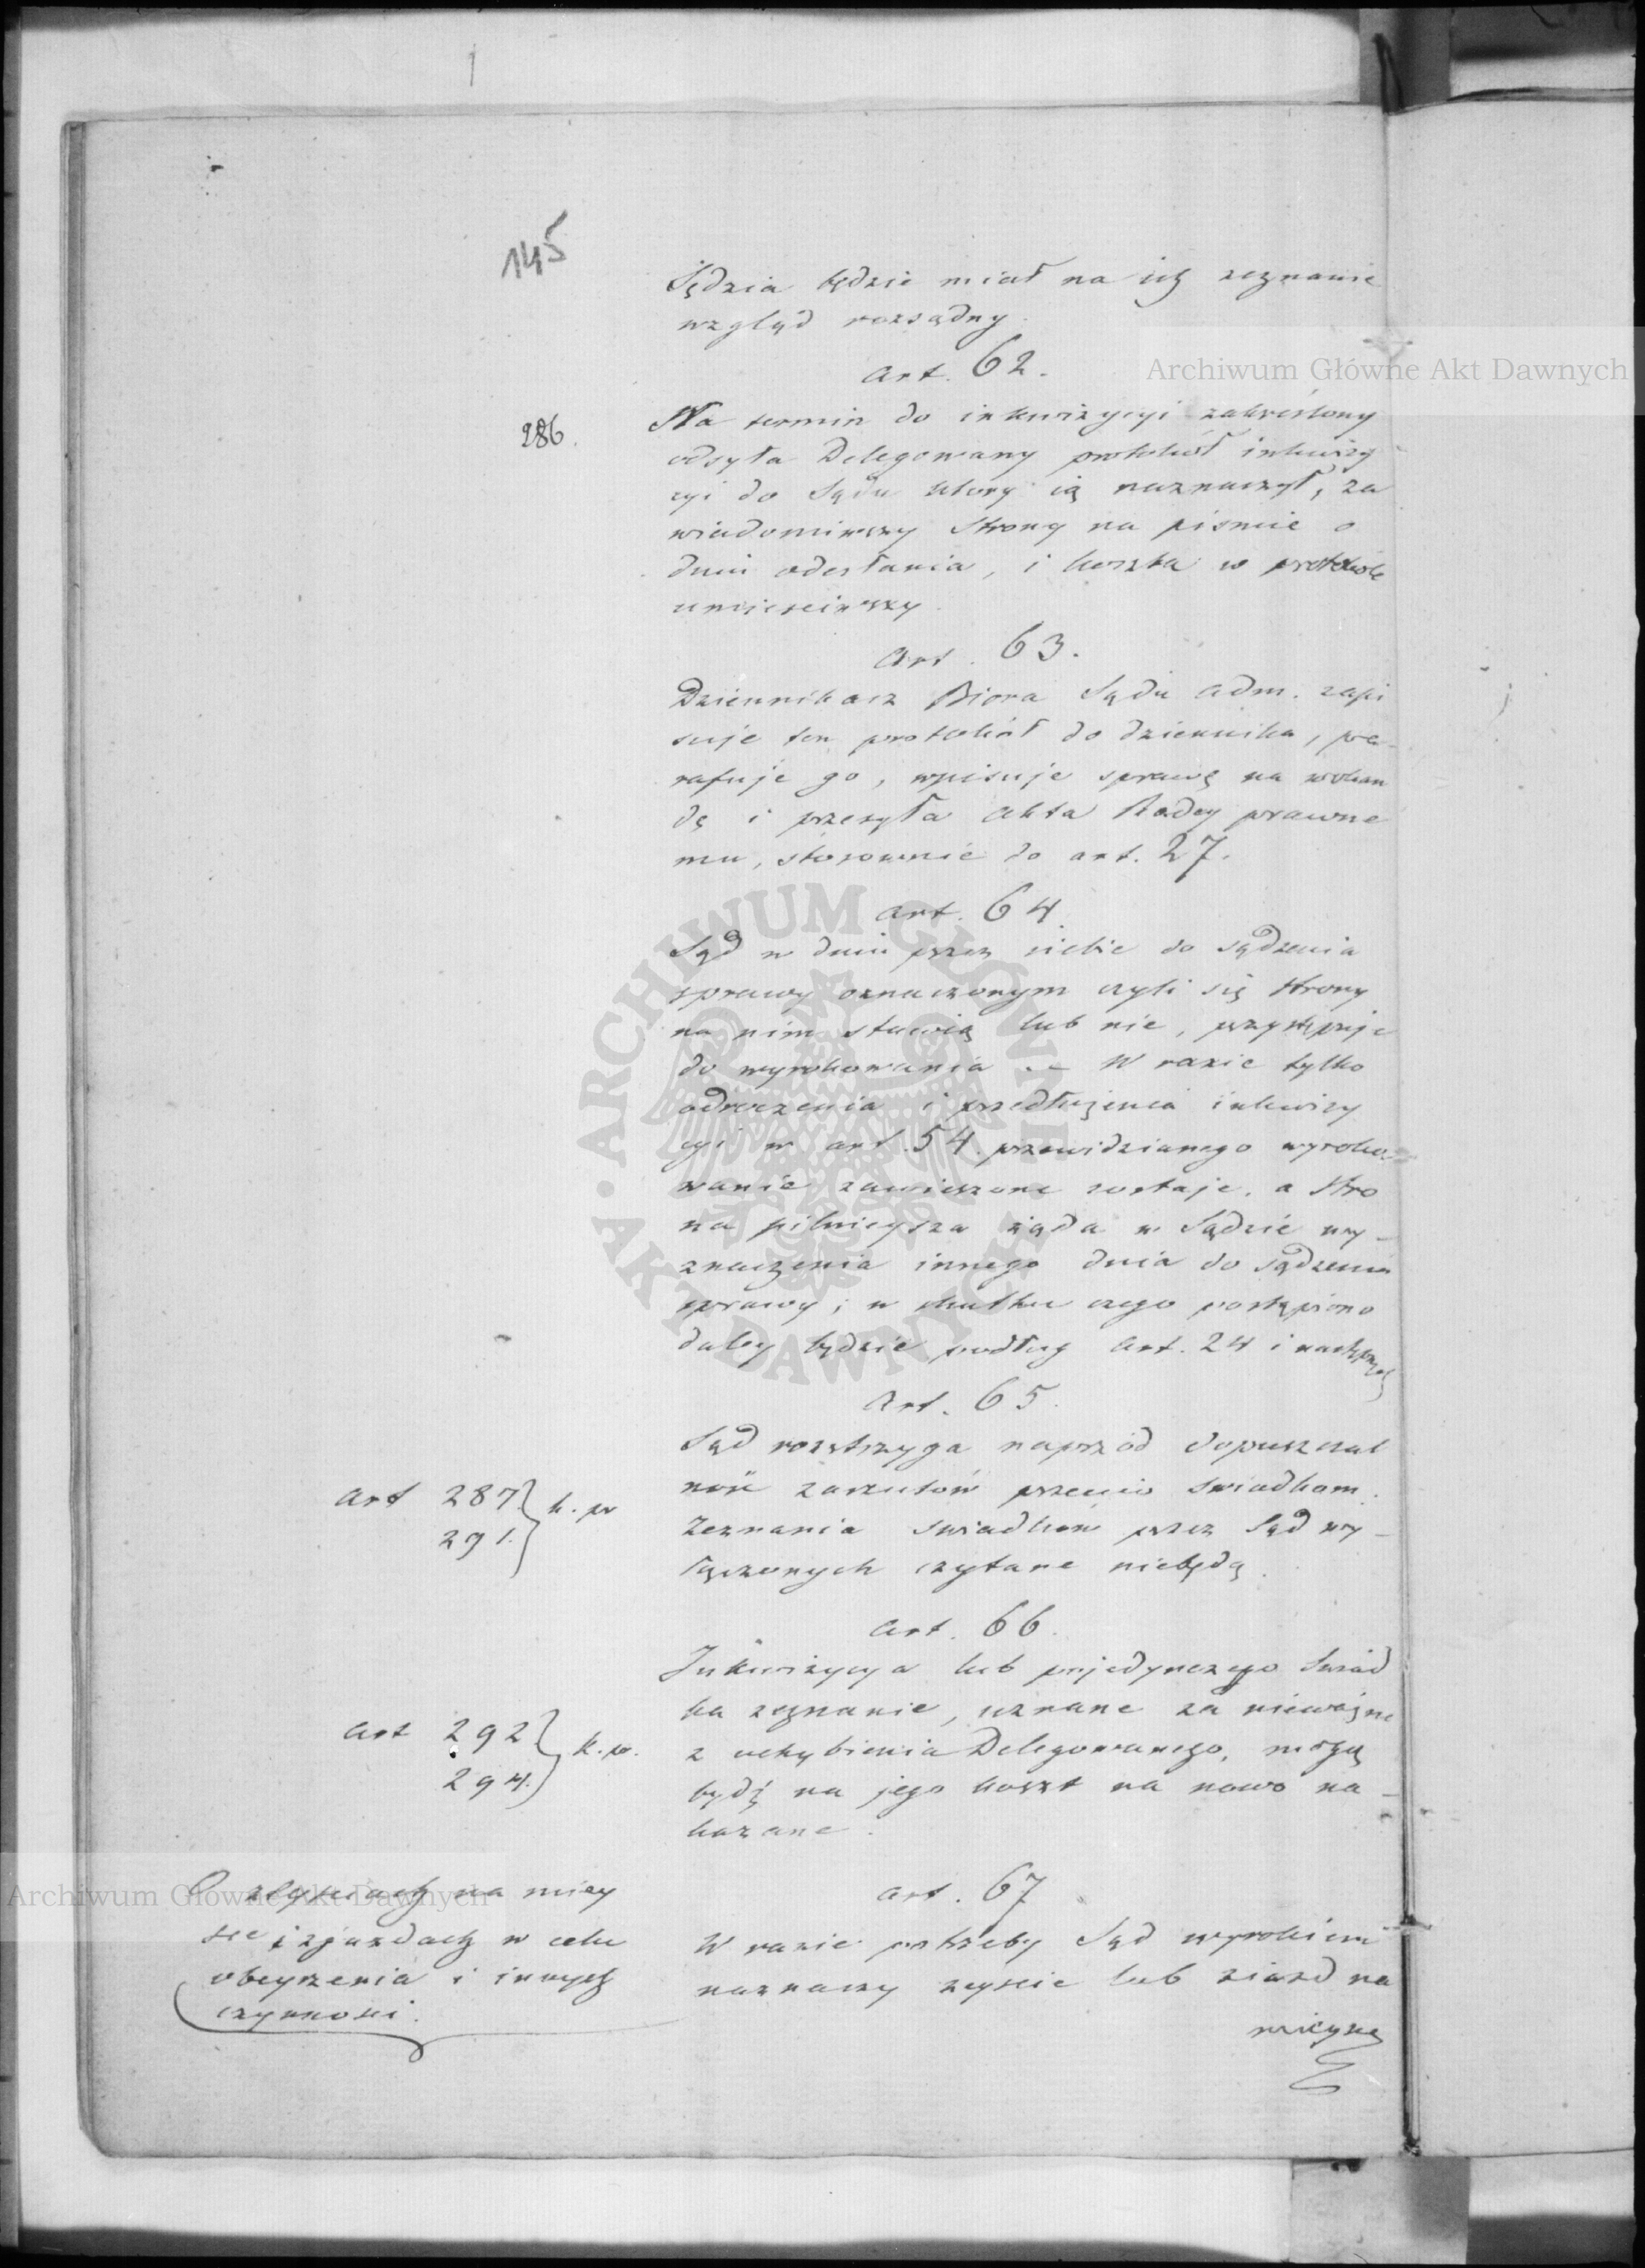 145
Sędzia będzie miał na ich zeznanie
wzgląd rozsądny.
Art. 62.
286.
Na termin do inkwizycyi zakreślony
odsyła Delegowany protokół inkwizy
cyi do Sądu który ią naznaczył, za
wiadomiwszy Strony na piśmie o
dniu odesłania, i koszta w protokole
umieściwszy.
Art. 63.
Dziennikarz Biora Sądu Adm. zapi
suje ten protokół do dziennika, pa-
rafuje go, wpisuje sprawę na wokan
dę i przesyła Akta Radcy prawne
mu, stosownie do art. 27.
Art. 64.
Sąd w dniu przez siebie do sądzenia
sprawy oznaczonym czyli się strony
na nim stawią lub nie, przystępuje
do wyrokowania. — W razie tylko
odroczenia i przedłużenia inkwizy
cyi w art. 54. przewidzianego wyroko-
wanie zawieszone zostaje, a Stro
na pilnieysza żąda w Sądzie wy-
znaczenia innego dnia do sądzenia
sprawy; w skutku czego postąpiono
daley będzie podług Art. 24 i następnych
Art. 65.
Sąd rozstrzyga naprzód dopuszczal
ność zarzutów przeciw świadkom.
Zeznania świadków przez Sąd wy-
łączonych czytane niebędą.
Art 287 } k. pr
291.
Art. 66.
Inkwizycya lub pojedynczego świad
ka zeznanie, uznane za nieważne
z uchybienia Delegowanego, mogą
bydź na jego koszt na nowo na-
kazane.
Art 292 } k. pr.
294.
O zeyściach na miey
sce i zjazdach w celu
obeyrzenia i innych
czynności.
Art. 67
W razie potrzeby Sąd wyrokiem
naznaczy zeyście lub ziazd na
mieysce
Archiwum Główne Akt Dawnych
Archiwum Główne Akt Dawnych
ARCHIWUM GŁÓWNE AKT DAWNYCH